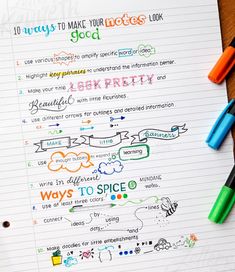 10 ways TO MAKE YOUR notes LOOK
good
1. Use various shapes to amplify specific word or idea.
2. Highlight key phrases to understand the information better.
3. Make your title LOOK PRETTY and
Beautiful with little flourishes
4. Use different arrows for outlines and detailed information
5. MAKE little banners
6. Use thought bubbles to expand learning
7. Write in different
WAYS TO SPICE MUNDANE
notes.
8. Use at least three colors
9. connect ideas using lines
and
10. Make doodles for little embellishments